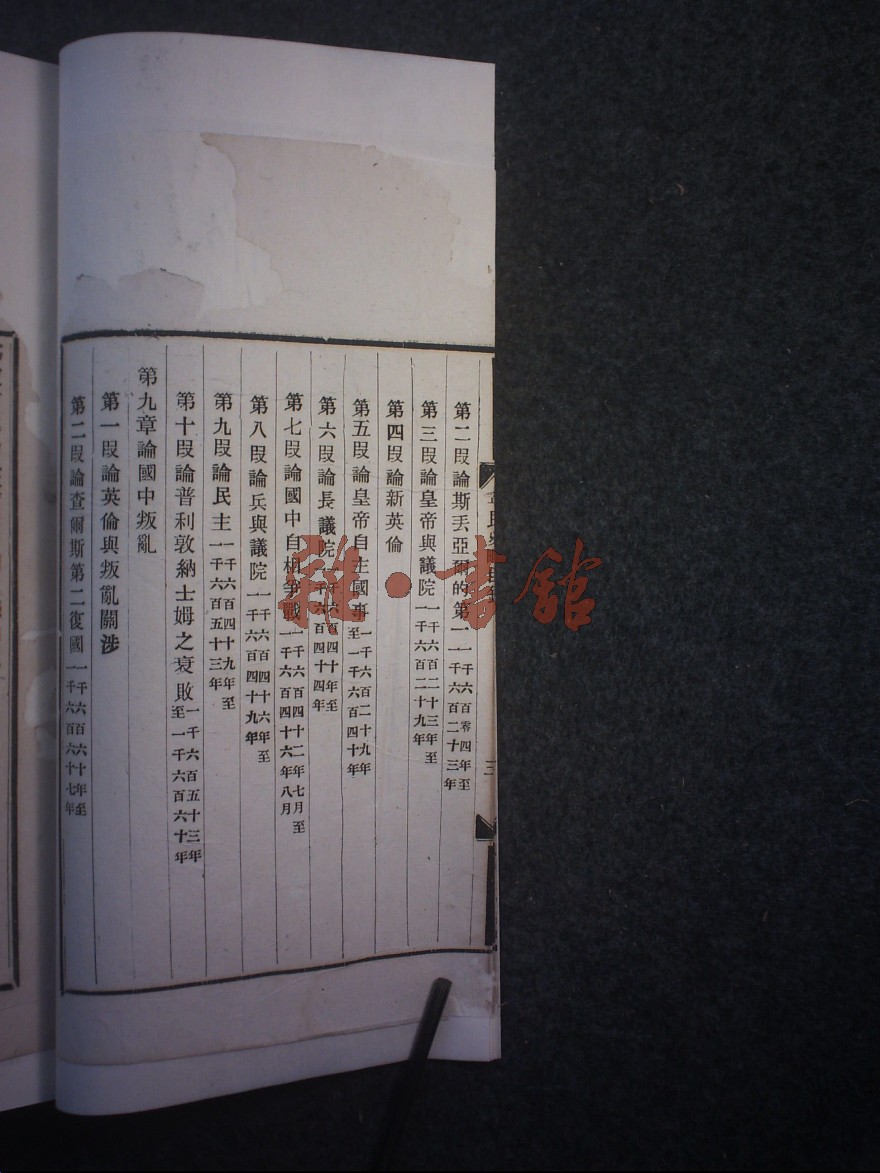 第二段論斯丟亞爾的第一一千六百零四年至一千六百二十三年
第三段論皇帝與議院一千六百二十三年至一千六百二十九年
第四段論新英倫
第五段論皇帝自主國事一千六百二十九年至一千六百四十年
第六段論長議院一千六百四十年至一千六百四十四年
第七段論國中自相爭戰一千六百四十二年七月至一千六百四十六年八月
第八段論兵與議院一千六百四十六年至一千六百四十九年
第九段論民主一千六百四十九年至一千六百五十三年
第十段論普利敦納士姆之衰敗一千六百五十三年至一千六百六十年
第九章論國中叛亂
第一段論英倫與叛亂關涉
第二段論查爾斯第二復國一千六百六十年至一千六百六十七年
三
雜·書館